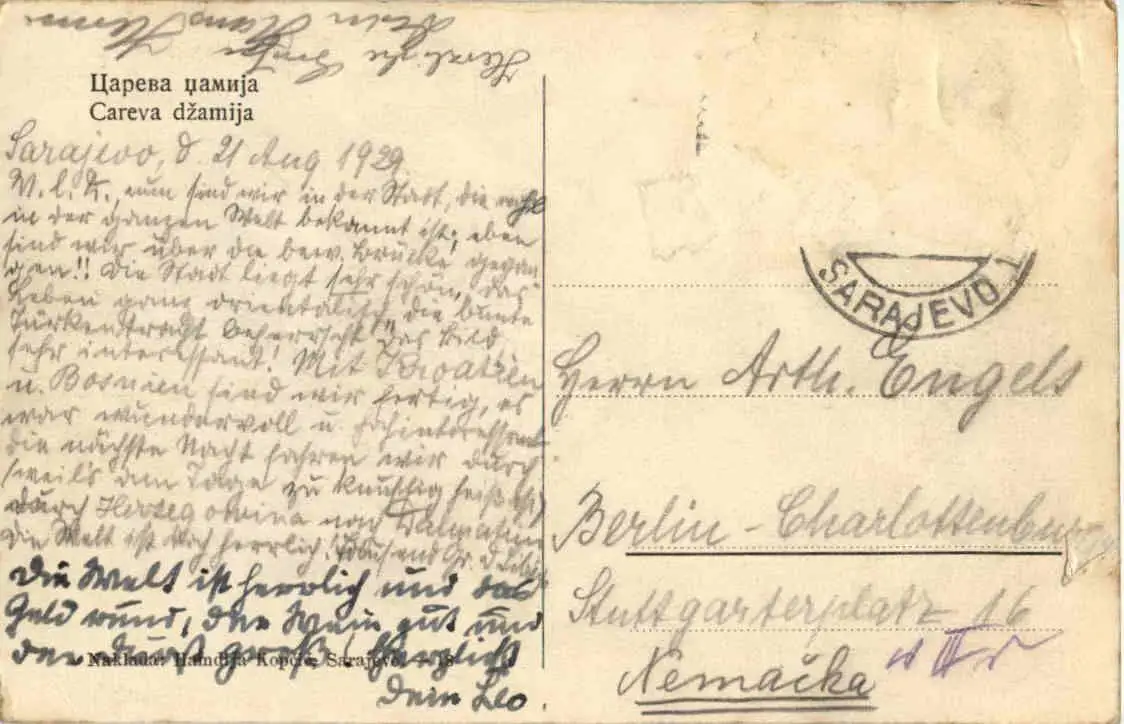 Царева џамија
Careva džamija
Sarajevo, d. 21 Aug 1929
nun sind wir in der Stadt, die wohl
in der ganzen Welt bekannt ist; eben
sind wir über die bew. Brücke gegan
gen!! Die Stadt liegt sehr schön, das
Leben ganz orientalisch, die bunte
Türkentracht beherrscht das Bild
sehr interessant! Mit Kroatien
u. Bosnien sind wir fertig, es
war wundervoll u. hochinteressant
die nächste Nacht fahren wir durch
(weil's am Tage zu heiß ist)
durch Herzegowina nach Dalmatien
die Welt ist doch herrlich! Tausend Gr. d.
Die Welt ist herrlich und das
Geld rund, der Wein gut und
der Durst groß! Herzlichst
Dein Leo.
Naklada: Hamdija Kopčić, Sarajevo.
Herzliche Grüße
SARAJEVO 1
Herrn Arth. Engels
Berlin - Charlottenburg
Stuttgarterplatz 16
Nemačka